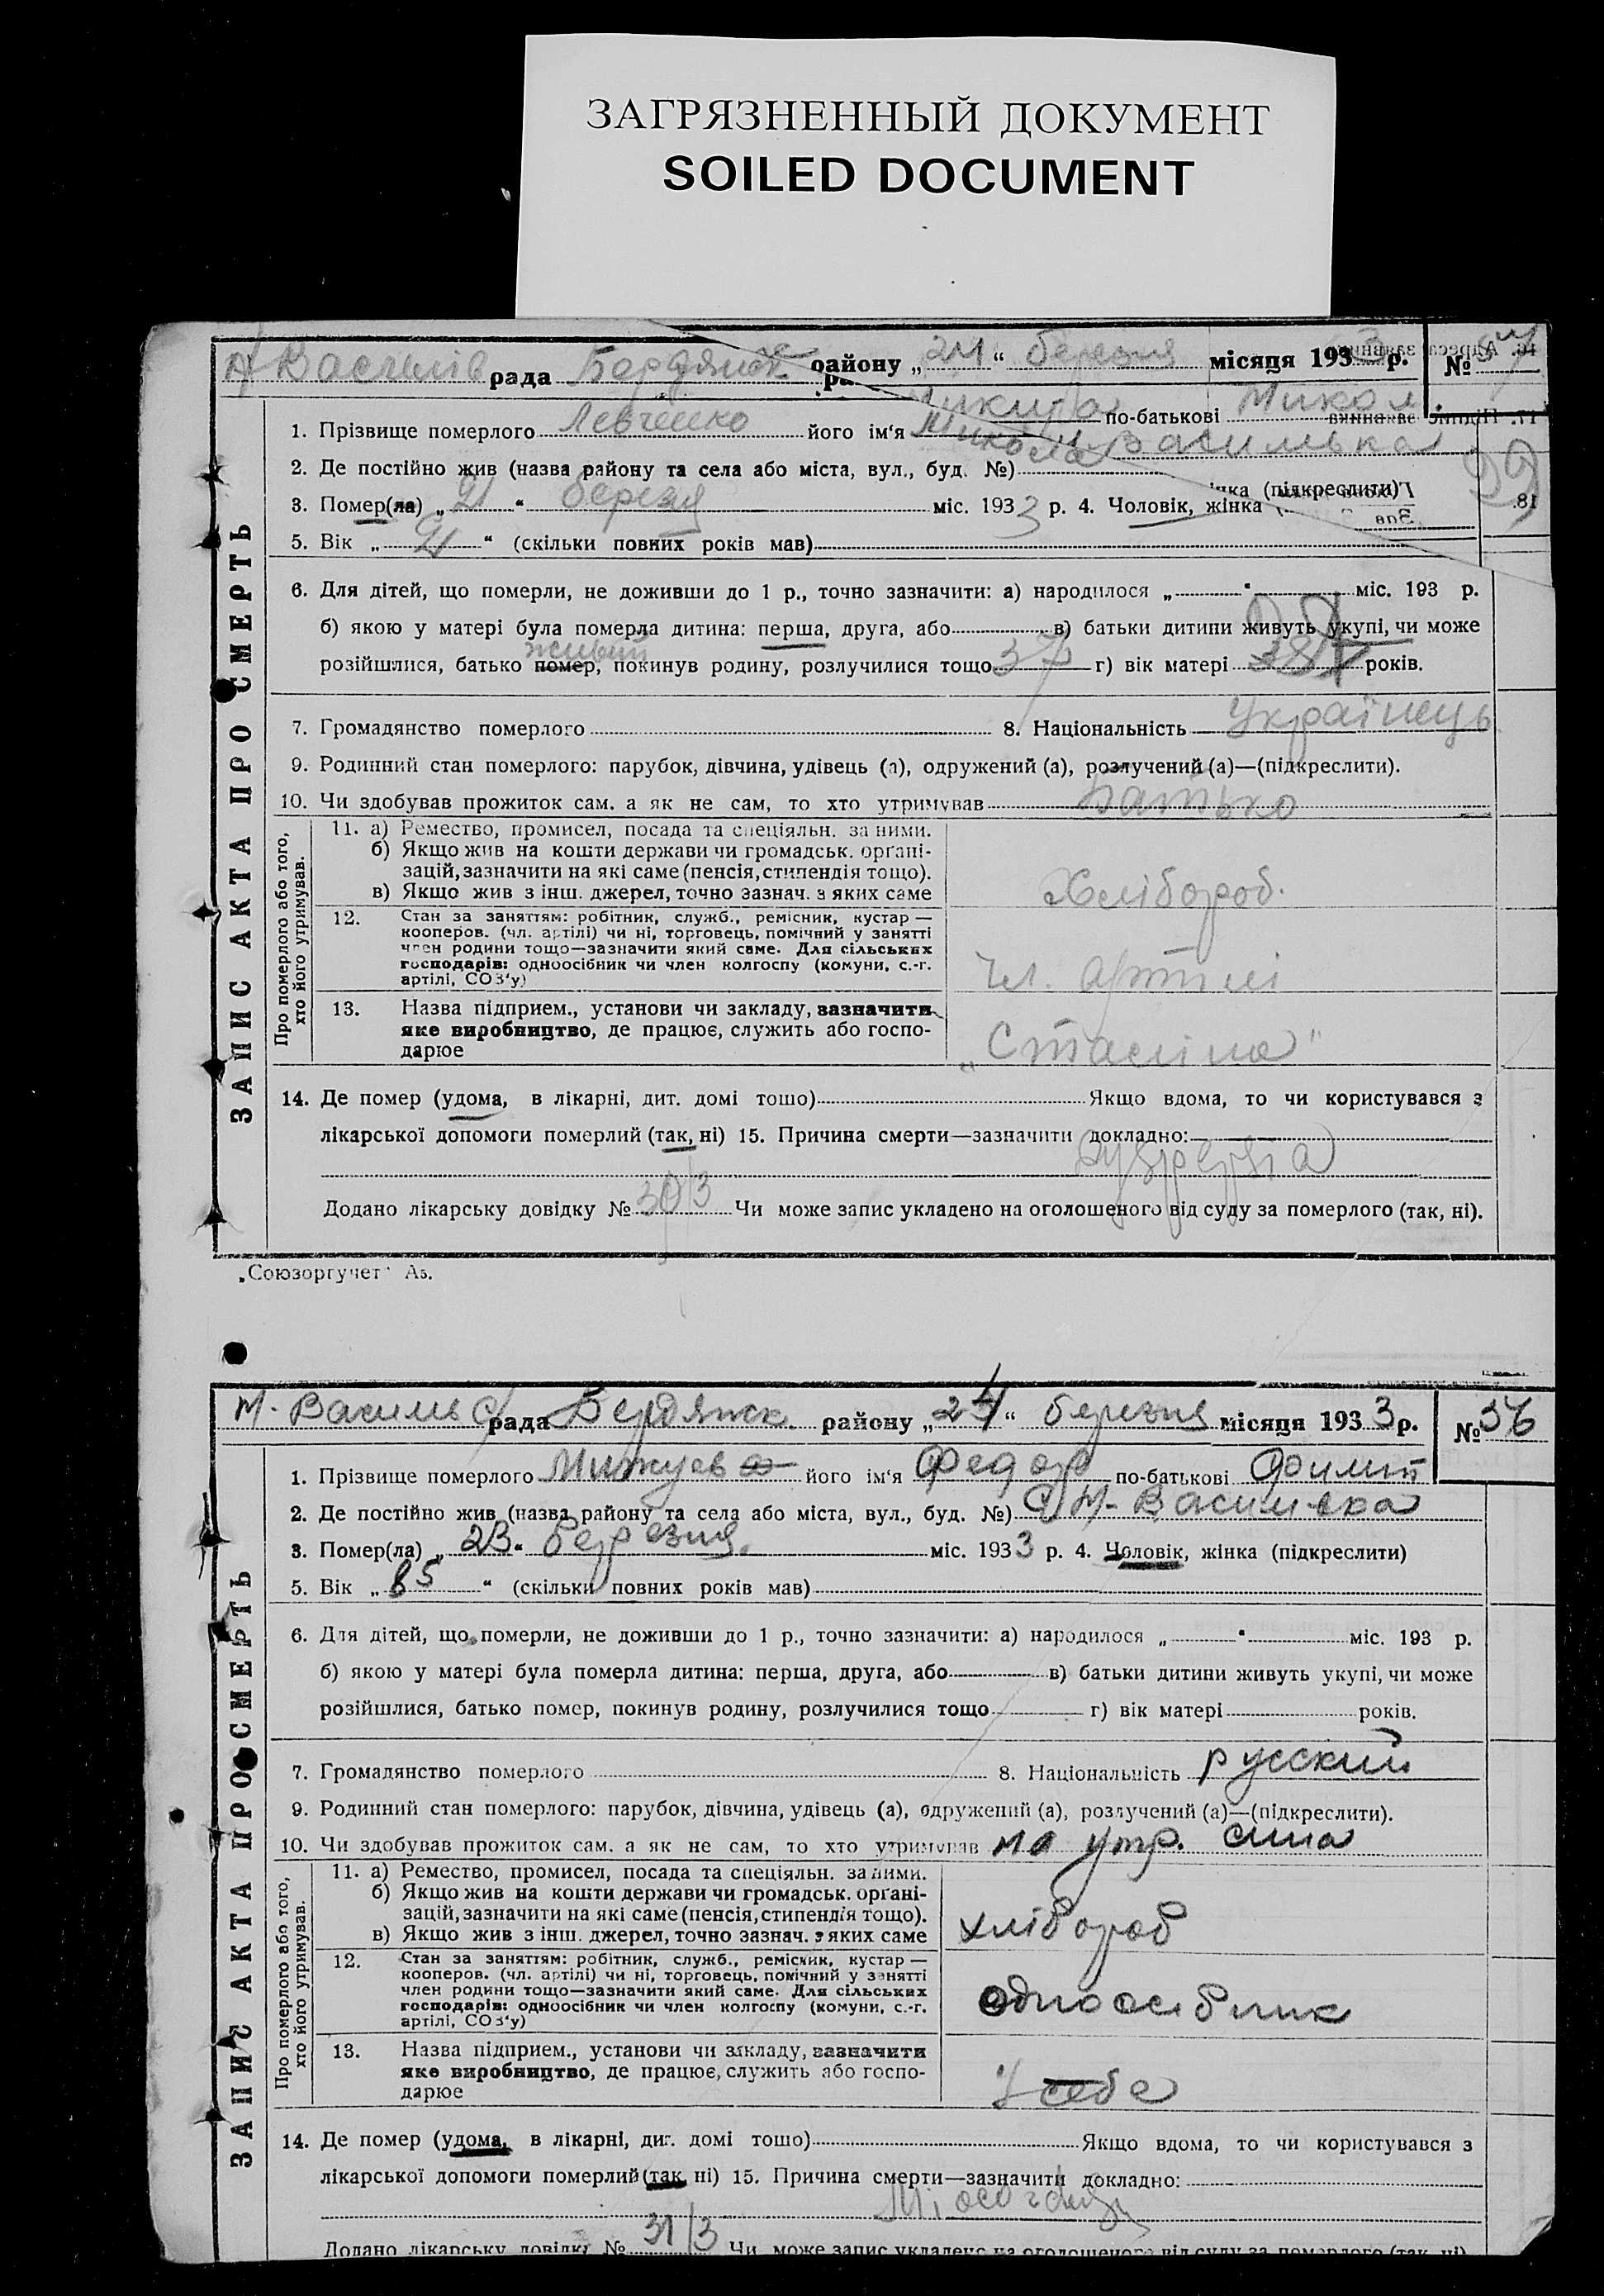 ЗАГРЯЗНЕННЫЙ ДОКУМЕНТ
SOILED DOCUMENT
рада Бердянськ району „24“ березня місяця 1933 р. №
1. Прізвище померлого Левченко його ім'я Микола по-батькові Микол
2. Де постійно жив (назва району та села або міста, вул., буд. №) Василька
3. Помер(ла) „21“ березня міс. 1933 р. 4. Чоловік, жінка (підкреслити)
5. Вік „21“ (скільки повних років мав)
6. Для дітей, що померли, не доживши до 1 р., точно зазначити: а) народилося „ “ міс. 193 р.
б) якою у матері була померла дитина: перша, друга, або в) батьки дитини живуть укупі, чи може
живий
розійшлися, батько помер, покинув родину, розлучилися тощо 37 г) вік матері років.
7. Громадянство померлого 8. Національність Українець
9. Родинний стан померлого: парубок, дівчина, удівець (а), одружений (а), розлучений (а)—(підкреслити).
10. Чи здобував прожиток сам, а як не сам, то хто утримував Батько
Про померлого або того, хто його утримував.
11. а) Ремество, промисел, посада та спеціяльн. за ними.
б) Якщо жив на кошти держави чи громадськ. орґані-
зацій, зазначити на які саме (пенсія, стипендія тощо).
в) Якщо жив з інш. джерел, точно зазнач. з яких саме
Хлібороб.
12. Стан за заняттям: робітник, служб., ремісник, кустар —
кооперов. (чл. артілі) чи ні, торговець, помічний у занятті
член родини тощо—зазначити який саме. Для сільських
господарів: одноосібник чи член колгоспу (комуни, с.-г.
артілі, СОЗ'у)
Чл. артілі
13. Назва підприєм., установи чи закладу, зазначити
яке виробництво, де працює, служить або госпо-
дарює
„Сталіна"
14. Де помер (удома, в лікарні, дит. домі тощо) Якщо вдома, то чи користувався з
лікарської допомоги померлий (так, ні) 15. Причина смерти—зазначити докладно:
Додано лікарську довідку № 30/3 Чи може запис укладено на оголошеного від суду за померлого (так, ні).
ЗАПИС АКТА ПРО СМЕРТЬ
„Союзоргучет" Аз.
М. Василь с/рада Бердянск району „24“ березня місяця 1933 р. № 36
1. Прізвище померлого його ім'я Федор по-батькові Филип
2. Де постійно жив (назва району та села або міста, вул., буд. №) С М-Василька
3. Помер(ла) „23“ березня міс. 1933 р. 4. Чоловік, жінка (підкреслити)
5. Вік „85“ (скільки повних років мав)
6. Для дітей, що померли, не доживши до 1 р., точно зазначити: а) народилося „ “ міс. 193 р.
б) якою у матері була померла дитина: перша, друга, або в) батьки дитини живуть укупі, чи може
розійшлися, батько помер, покинув родину, розлучилися тощо г) вік матері років.
7. Громадянство померлого 8. Національність русский
9. Родинний стан померлого: парубок, дівчина, удівець (а), одружений (а), розлучений (а)—(підкреслити).
10. Чи здобував прожиток сам, а як не сам, то хто утримував на утр. сина
Про померлого або того, хто його утримував.
11. а) Ремество, промисел, посада та спеціяльн. за ними.
б) Якщо жив на кошти держави чи громадськ. орґані-
зацій, зазначити на які саме (пенсія, стипендія тощо).
в) Якщо жив з інш. джерел, точно зазнач. з яких саме
хлібороб
12. Стан за заняттям: робітник, служб., ремісник, кустар —
кооперов. (чл. артілі) чи ні, торговець, помічний у занятті
член родини тощо—зазначити який саме. Для сільських
господарів: одноосібник чи член колгоспу (комуни, с.-г.
артілі, СОЗ'у)
одноосібник
13. Назва підприєм., установи чи закладу, зазначити
яке виробництво, де працює, служить або госпо-
дарює
У себе
14. Де помер (удома, в лікарні, диг. домі тощо) Якщо вдома, то чи користувався з
лікарської допомоги померлий (так, ні) 15. Причина смерти—зазначити докладно:
Додано лікарську довідку № 31/3 Чи може запис укладено на оголошеного від суду за померлого (так, ні)
ЗАПИС АКТА ПРО СМЕРТЬ